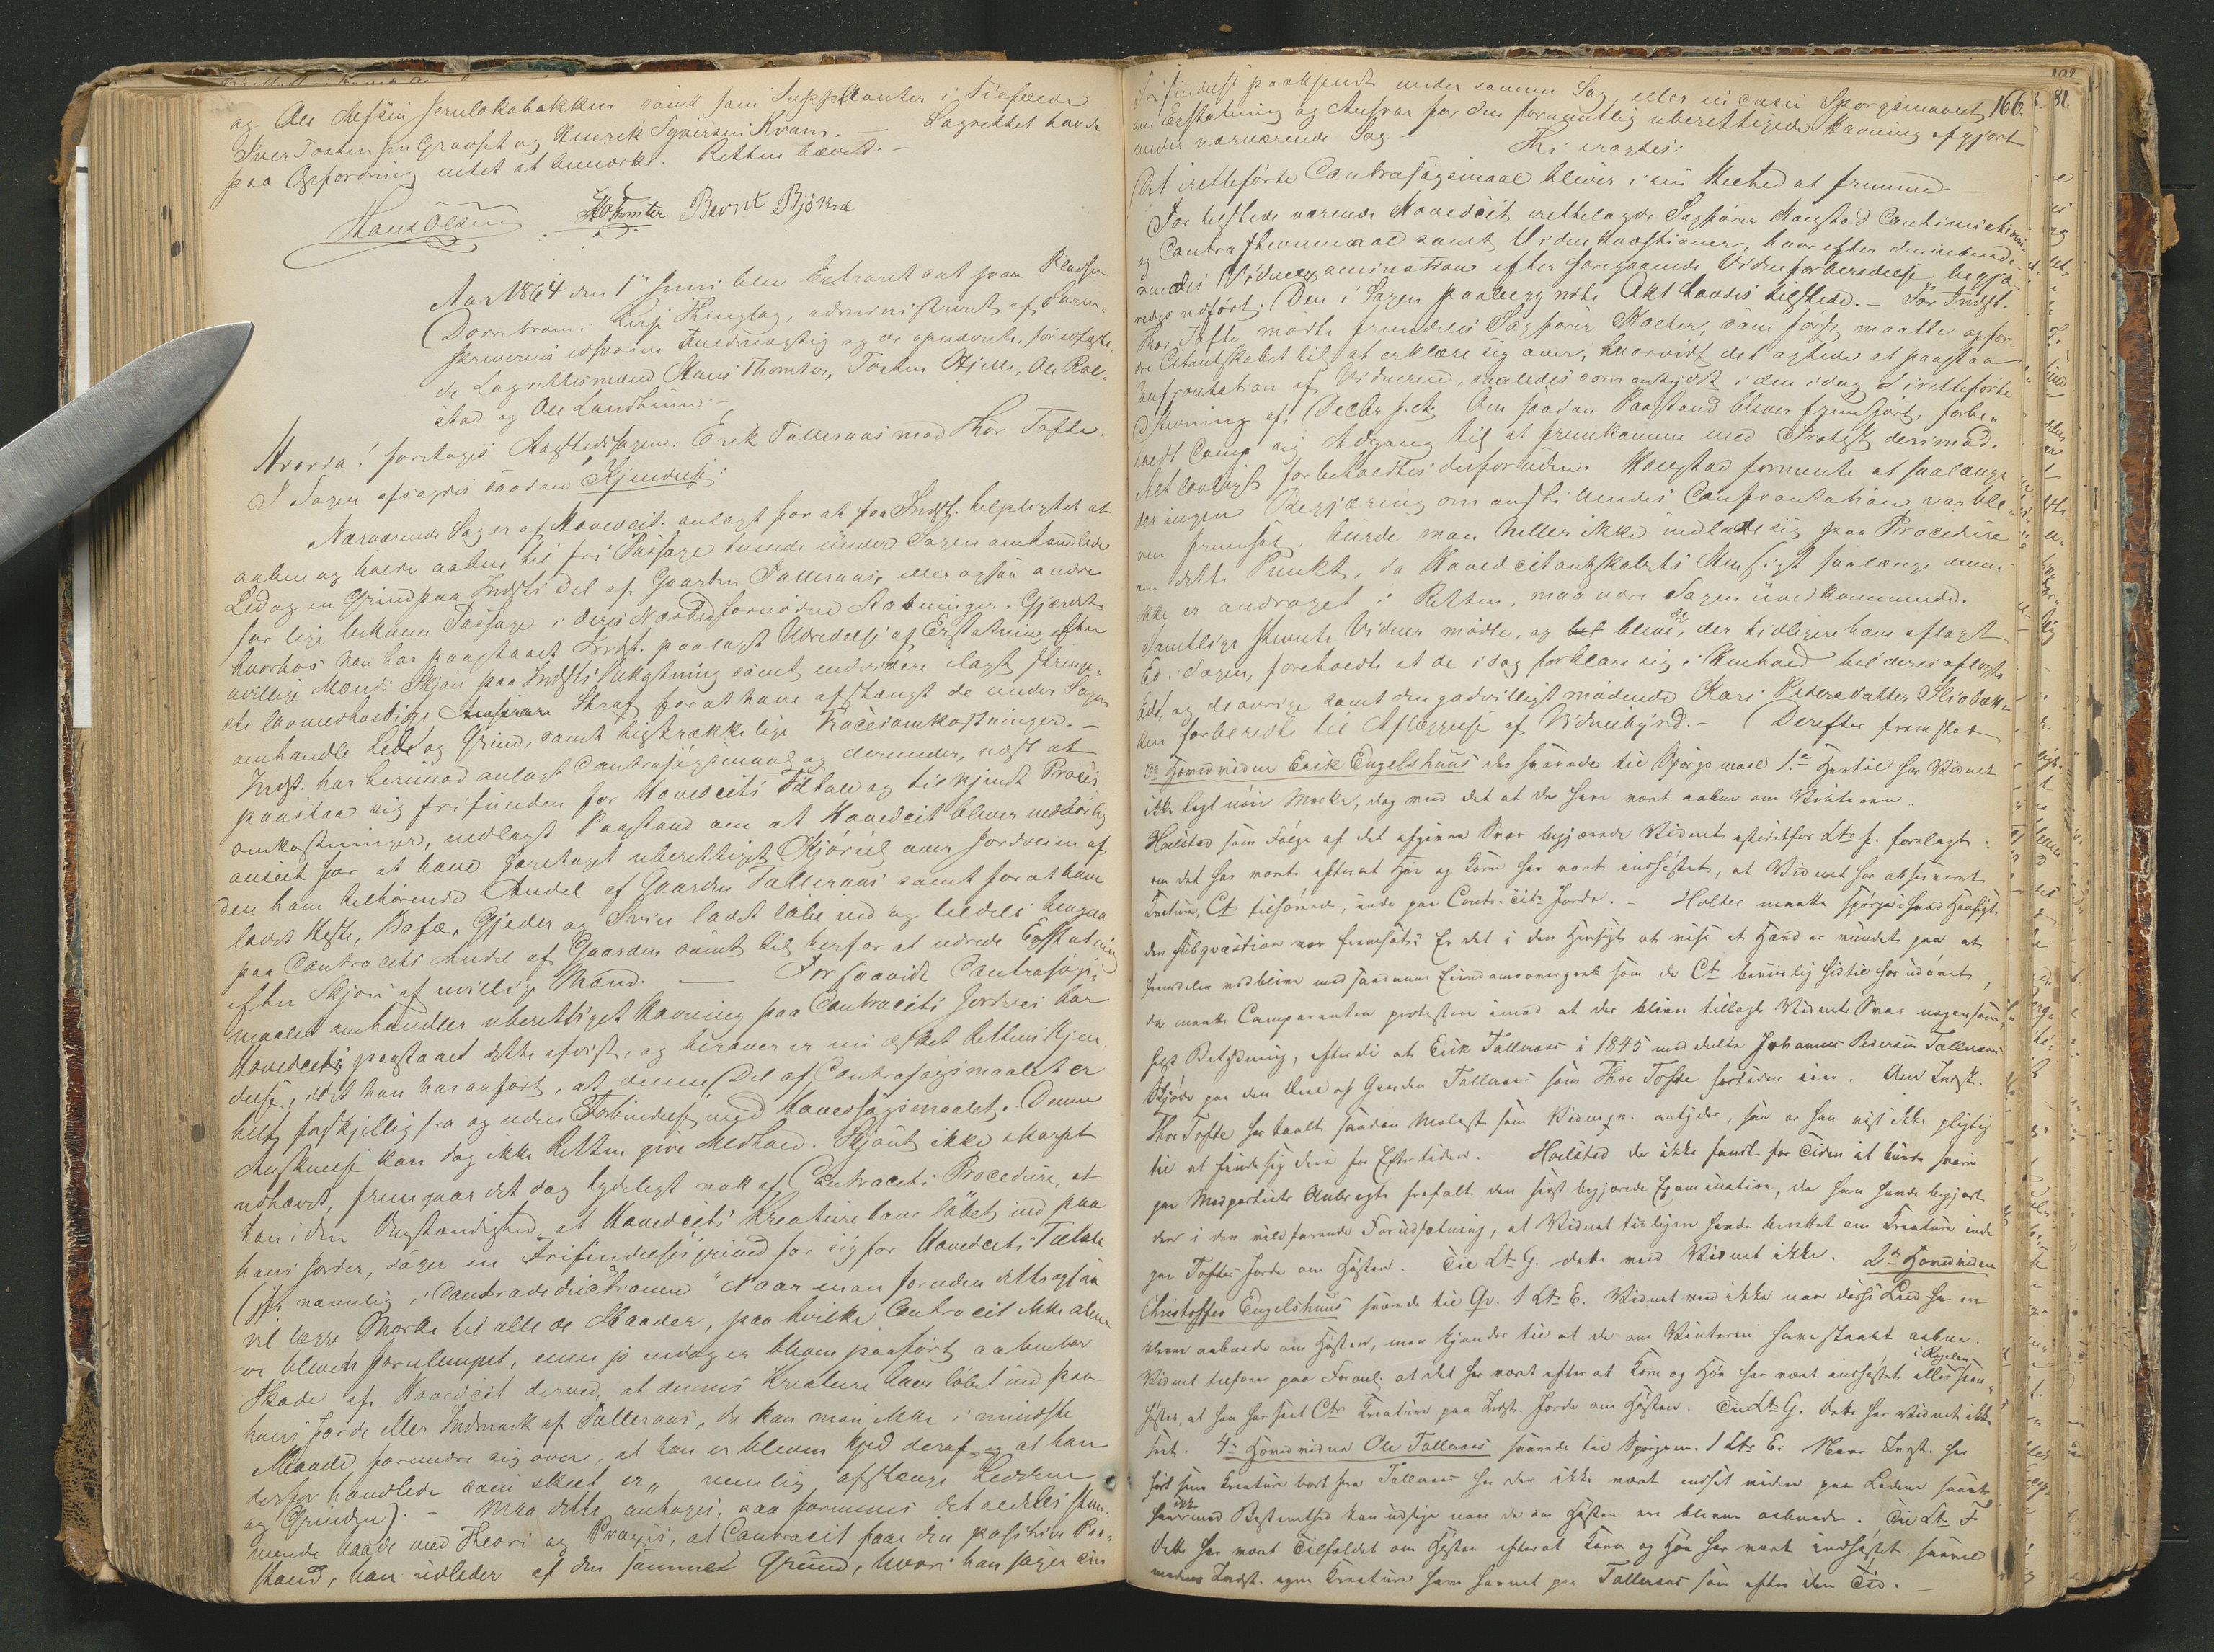 og Ole Olessøn Jernlokabakken samt som Suppleanter i Tilfælde
Iver Tostensøn Gravset og Henrik Syversøn Kram. — Lagrettet havde
paa Opfordring intet at bemærke. Retten hævet. —
Hans Olsen HThomter Bernt Björne
Aar 1864 den 1ste Juni blev Extraret sat paa Pladsen
Dorrebram i Lesje Thinglag, administreret af Soren-
skriverens edsvorne Fuldmægtig og de opnævnte, før edtagne
de Lagrettesmænd Hans Thomter, Tosten Hjelle, Ole Rol-
stad og Ole Landheim —
Hvorda! foretoges Aastedssagen: Erik Talleraas mod Thor Tofte.
I Sagen afsagdes saadan Kjendelse:
Nærværende Sag er af Hovedcit. anlagt for at faa Indst. tilpligtet at
aabne og holde aabne til fri Passage tvende under Sagen omhandlede
Led og en Grind paa Indsts Del af Gaarden Talleraas, eller ogsaa andre
for lige bekvem Passage i deres Nærhed fornødne Aabninger i Gjærdet
hvorhos han har paastaaet Indst. paalagt Udredelse af Erstatning efter
uvillige Mænds Skjøn paa Indsts Bekostning samt endvidere ilagt strenge-
ste lovmedholdige Ansvar Straf for at have afstængt de under Sagen
omhandle Lede og Grind, samt tilstrækkelige Procesomkostninger. —
Indst. har herimod anlagt Contrasøgsmaal og derunder, næst at
paastaa sig frifunden for Hovedcits Tiltale og tilkjendt Proces-
omkostninger, nedlagt Paastand om at Hovedcit bliver vedbørlig
anseet for at have foretaget uberettiget Kjørsel over Jordveien af
den ham tilhørende Andel af Gaarden Talleraas samt for at have
ladet Heste, Bofæ, Gjeder og Sviin ladet løbe ind og tildels bringe
paa Contracits Andel af Gaarden samt til herfor at udrede Erstatning
efter Skjøn af uvillige Mænd. — Forsaavidt Contrasøgs-
maalet omhandler uberettiget Havning paa Contracits Jordvei har
Hovedcits paastaaet dette afvist, og herover er nu æsket Rettens Kjen-
delse, idet han har anført, at denne Del af Contrasøgsmaalet er
helt forskjellig fra og uden Forbindelse med Hovedsøgsmaalet. Denne
Anskuelse kan dog ikke Retten give Medhold. Skjønt ikke skarpt
udhævet, fremgaar det dog tydeligt nok af Contracits Procedure, at
han i den Omstændighed, at Hovedcits Kreature have løbet ind paa
hans Jorder, søger en Frifindelsesgrund for sig for Hovedcits Tiltale
(jfr nemlig i Contradeductionen "Naar man foruden dette ogsaa
vil lægge Mærke til alle de Maader, paa hvilke Contracit ikke alene
er bleven forulempet, men jo endog er bleven paaført aabenbar
Skade af Hovedcit derved, at dennes Kreature have løbet ind paa
hans Jorde eller Indmark af Talleraas, da kan man ikke i mindste
Maade forundre sig over, at han er bleven kjed deraf og at han
derfor handlede som skeet er" nemlig afstænge Ledene
og Grinden). — Maa dette antages, saa formenes det aldeles stem-
mende baade med Theori og Praxis, at Contracit faar den positive Paa-
stand, han udleder af den samme Grund, hvori han søger sin
166.
Frifindelse paakjendt under samme Sag, eller in casu Spørgsmaalet
om Erstatning og Ansvar for den formentlig uberettigede Havning afgjort
under nærværende Sag. — Thi eragtes:
Det irettefórte Contrasøgsmaal bliver i sin Heelhed at fremme —
For tilstede værende Hovedcit irettelagde Sagfører Haugstad Continuations
og Contrastevnemaal samt Vidnekvæstioner, hvorefter deri benæv-
nendes Vidneexamination efter foregaaende Vidneforberedelse begjæ-
redes udført. Den i Sagen paabegyndte Akt havdes tilstede. — For Indst.
Thor Tofte mødte fremdeles Sagfører Holter, som først maatte opfor-
dre Citantskabet til at erklære sig over, hvorvidt det agtede at paastaa
Confrontation af Vidnerne, saaledes som antydet i den i dag irettefórte
Stevning af Decbr f. A. Om saadan Paastand bliver fremført, forbe-
holdt Comp. sig Adgang til at fremkomme med Protest derimod.
Alt lovligt forbeholdtes desforuden. Haugstad formente at saalænge
der ingen Begjæring om anstillendes Confrontation var ble-
ven fremsat, burde man heller ikke indlade sig paa Procedure
om dette Punkt, da Hovedcitantskabets Hensigt saalænge denne
ikke er andraget i Retten, maa være Sagen uvedkommende.
Samtlige stevnte Vidner mødte, og blev de, der tidligere have aflagt
Ed i Sagen, foreholdt at de i dag forklare sig i Henhold til deres aflagte
Ed, og de øvrige samt den godvilligt mødende Kari Pedersdatter Sliobakk-
ken forberedte til Aflæggelse af Vidnesbyrd. — Derefter fremstod
3die Hovedvidne Erik Engelshuus der svarede til Spørgsmaal 1. E. Hertil har Vidnet
ikke lagt nøie Mærke, dog med det at de have været aabne om Vinteren.
Haugstad som Følge af det afgivne Svar begjærede Vidnet istedetfor Ltr f. forelagt:
om det har været efterat Hø og Korn har været indhøstet, at Vidnet har observeret
Kreature, Ct tilhørende, inde paa Contracits Jorde. — Holter maatte spørge i hvad Hensigt
den Subqvæstion var fremsat: Er det i den Hensigt at vise at Hævd er vundet paa at
fremdeles vedblive med saadanne Eiendomsovergreb som de Ct benævnelig hidtil har udøvet,
da maatte Comparenten protestere imod at der bliver tillagt Vidnets Svar nogensom-
helst Betydning, efterdi at Erik Talleraas i 1845 meddelte Johannes Pedersen Talleraas
Skjøde paa den Deel af Gaarden Talleraas som Thor Tofte fortiden eier. Om Indst.
Thor Tofte har taalt saadan Molest som Vidnespm. antyder, saa er han vist ikke pligtig
til at finde sig deri for Eftertiden. Haugstad der ikke fandt for Tiden at burde svare
paa Modpartiets Anbragte frafaldt den sidst begjærede Examination, da han havde begjært
den i den vildfarende Forudsætning, at Vidnet tidligere havde berettet om Kreature inde
paa Toftes Jorde om Høsten. Til Lt. G. dette ved Vidnet ikke. 2det Hovedvidne
Christoffer Engelshuus svarede til Qv. 1 Ltr E. Vidnet ved ikke naar disse Led har
bleven aabnede om Høsten, men kjender til at de om Vinteren have staaet aabne.
Vidnet tilføier paa Foranl. at det har været efter at Korn og Hø har været indhøstet i Regelen
høstes, at han har seet Cts Kreature paa Indst. Jorde om Høsten. Til Lt G. dette har Vidnet ikke
seet. 4de Hovedvidne Ole Talleraas svarede til Spørgsm. 1 Ltr E. Naar Indst. har
ført sine Kreature bort fra Talleraas har der ikke været indsat videre paa Ledene
han ikke med Bestemthed kan udsige naar de om Høsten ere blevne aabnede. Til Lt F
dette har været Tilfældet om Høsten efterat Korn og Hø har været indhøstet
medens Indst. egne Kreature have havnet paa Talleraas som efter den Tid. —